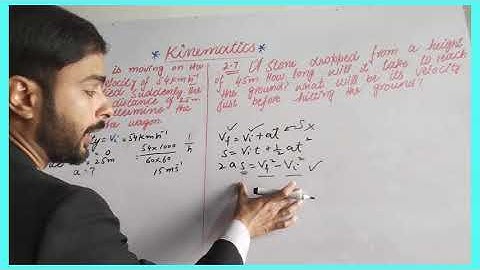 * Kinematics *
is moving on the
velocity of 54 kmh⁻¹
Suddenly the
distance of 25m
determine the
a wagon
= Vi = 54 kmh⁻¹
= 0
54×1000
60×60
1
h
= 25m
a = ?
15 ms⁻¹
2.7 If Stone dropped from a height
of 45m How long will it take to reach
the ground? what will be its velocity
just before hitting the ground?
Vf = Vi + at
S = Vit + ½ at²
2as = Vf² - Vi² ✓